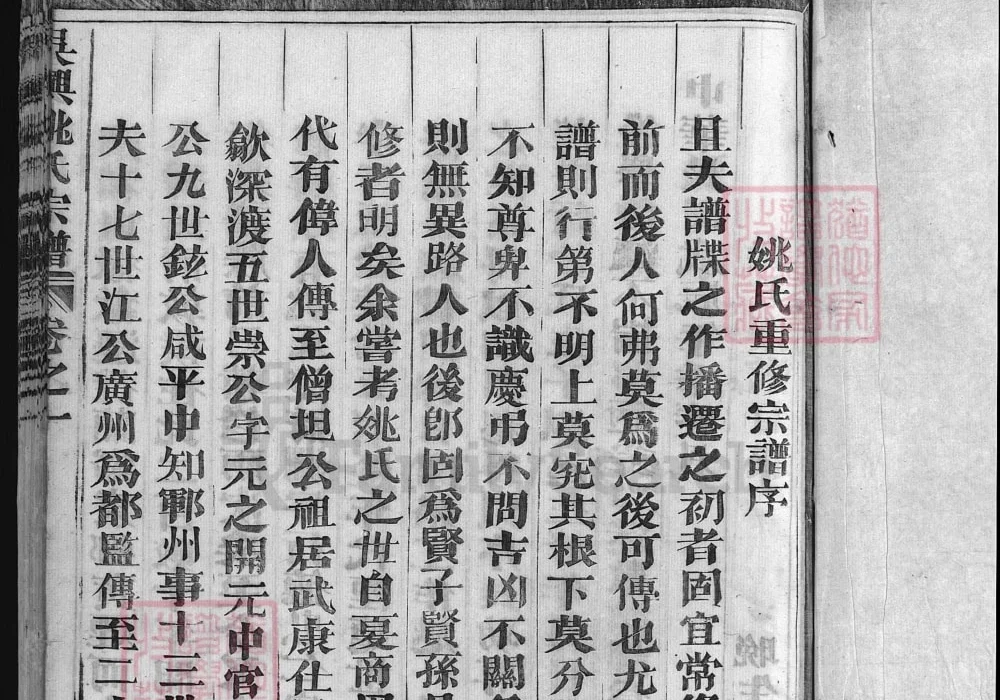 姚氏重修宗譜序
且夫譜牒之作播遷之初者固宜常
前而後人何弗莫為之後可傳也尤
譜則行第不明上莫究其根下莫分
不知尊卑不識慶弔不問吉凶不關
則無異路人也後卽固為賢子賢孫
修者明矣余嘗考姚氏之世自夏商
代有偉人傳至僧坦公祖居武康仕
歙深渡五世崇公字元之開元中官
公九世鉉公咸平中知鄆州事十三世
夫十七世江公廣州為都監傳至二
吳興姚氏宗譜 卷之一